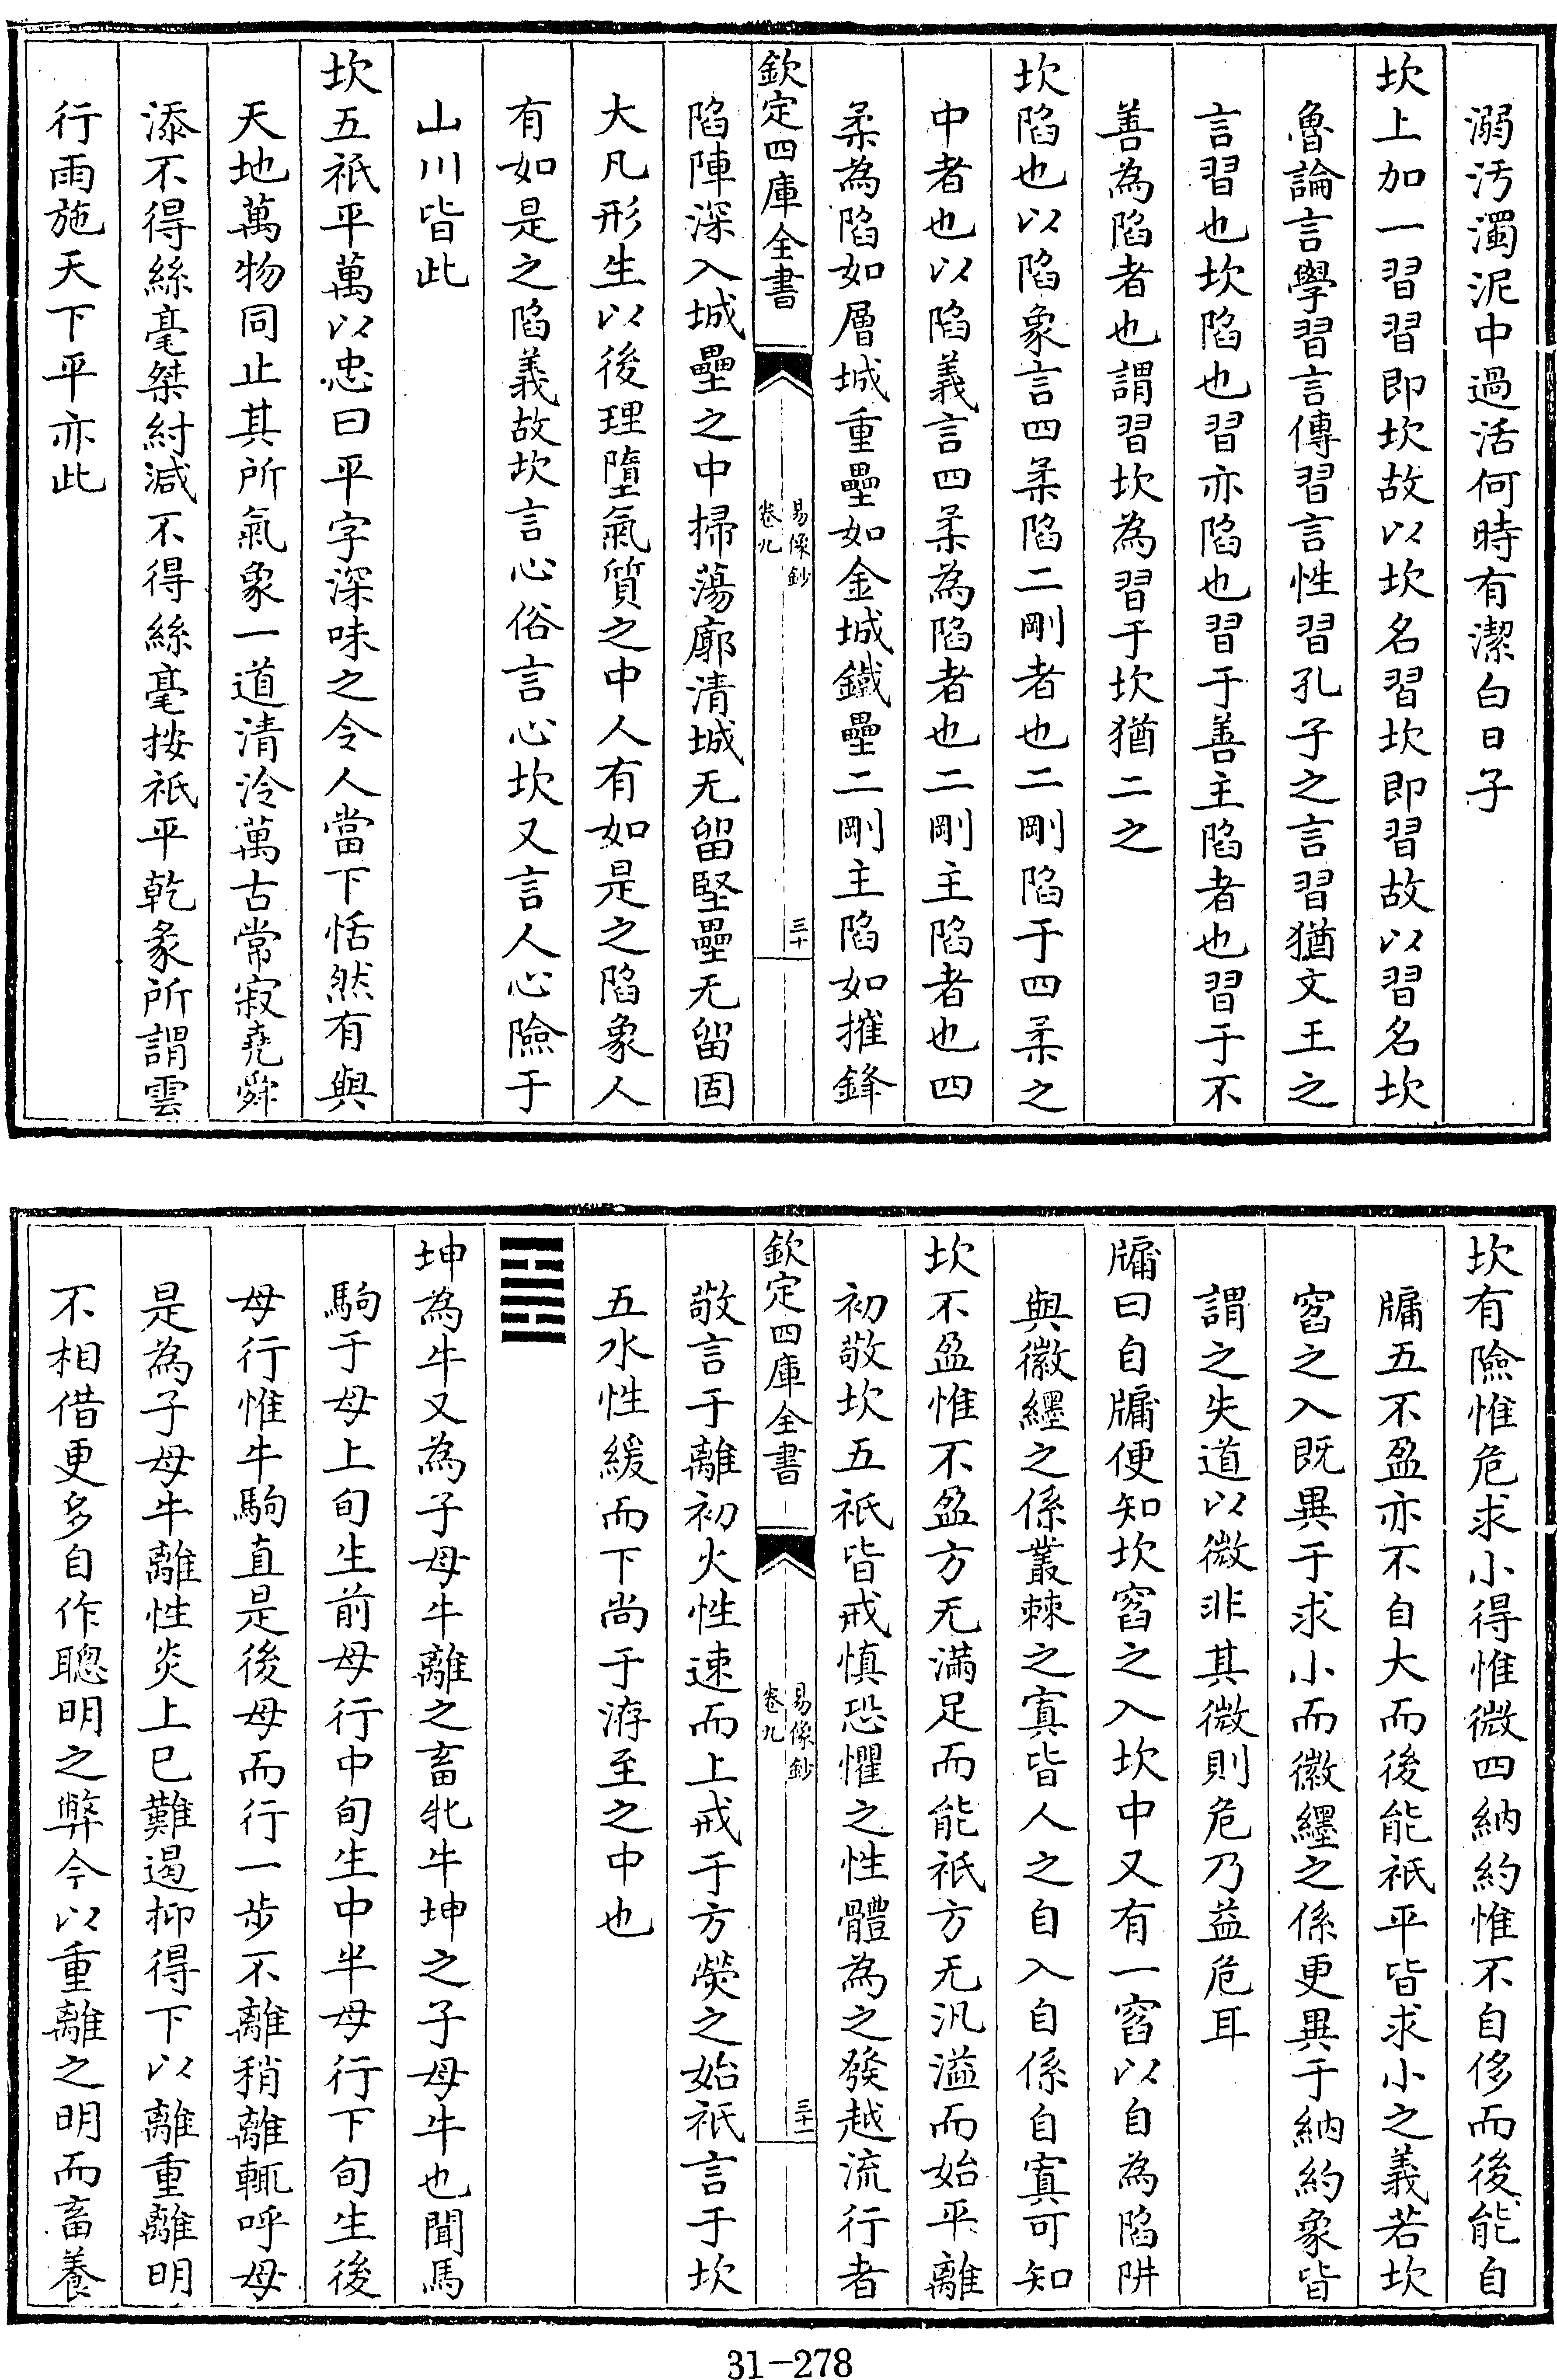 溺汚濁泥中過活何時有潔白日子
坎上加一習習即坎故以坎名習坎即習故以習名坎
魯論言學習言傳習言性習孔子之言習猶文王之
言習也坎陷也習亦陷也習于善主陷者也習于不
善為陷者也謂習坎為習于坎猶二之
坎陷也以陷象言四柔陷二剛者也二剛陷于四柔之
中者也以陷義言四柔為陷者也二剛主陷者也四
柔為陷如層城重壘如金城鐵壘二剛主陷如摧鋒
欽定四庫全書
易像鈔
卷九
三十
陷陣深入城壘之中掃蕩廓清城无留堅壘无留固
大凡形生以後理墮氣質之中人有如是之陷象人
有如是之陷義故坎言心俗言心坎又言人心險于
山川皆此
坎五祇平萬以忠曰平字深味之令人當下恬然有與
天地萬物同止其所氣象一道清泠萬古常寂堯舜
添不得絲毫桀紂減不得絲毫按祇平乾彖所謂雲
行雨施天下平亦此
坎有險惟危求小得惟微四納約惟不自侈而後能自
牖五不盈亦不自大而後能祇平皆求小之義若坎
窞之入既異于求小而徽纆之係更異于納約象皆
謂之失道以微非其微則危乃益危耳
牖曰自牖便知坎窞之入坎中又有一窞以自為陷阱
與徽纆之係叢棘之寘皆人之自入自係自寘可知
坎不盈惟不盈方无滿足而能祇方无汎溢而始平離
初敬坎五祇皆戒慎恐懼之性體為之發越流行者
欽定四庫全書
易像鈔
卷九
三十一
敬言于離初火性速而上戒于方熒之始祇言于坎
五水性緩而下尚于洊至之中也
䷝
坤為牛又為子母牛離之畜牝牛坤之子母牛也聞馬
駒于母上旬生前母行中旬生中半母行下旬生後
母行惟牛駒直是後母而行一步不離稍離輒呼母
是為子母牛離性炎上已難遏抑得下以離重離明
不相借更多自作聰明之弊今以重離之明而畜養
31-278